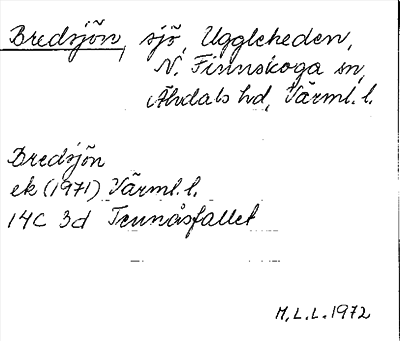 Bredsjön, sjö, Uggleheden,
N. Finnskoga sn,
Älvdals hd, Värml. l.
Bredsjön
ek (1971) Värml. l.
14C 3d Tennåsfallet
H.L.L. 1972